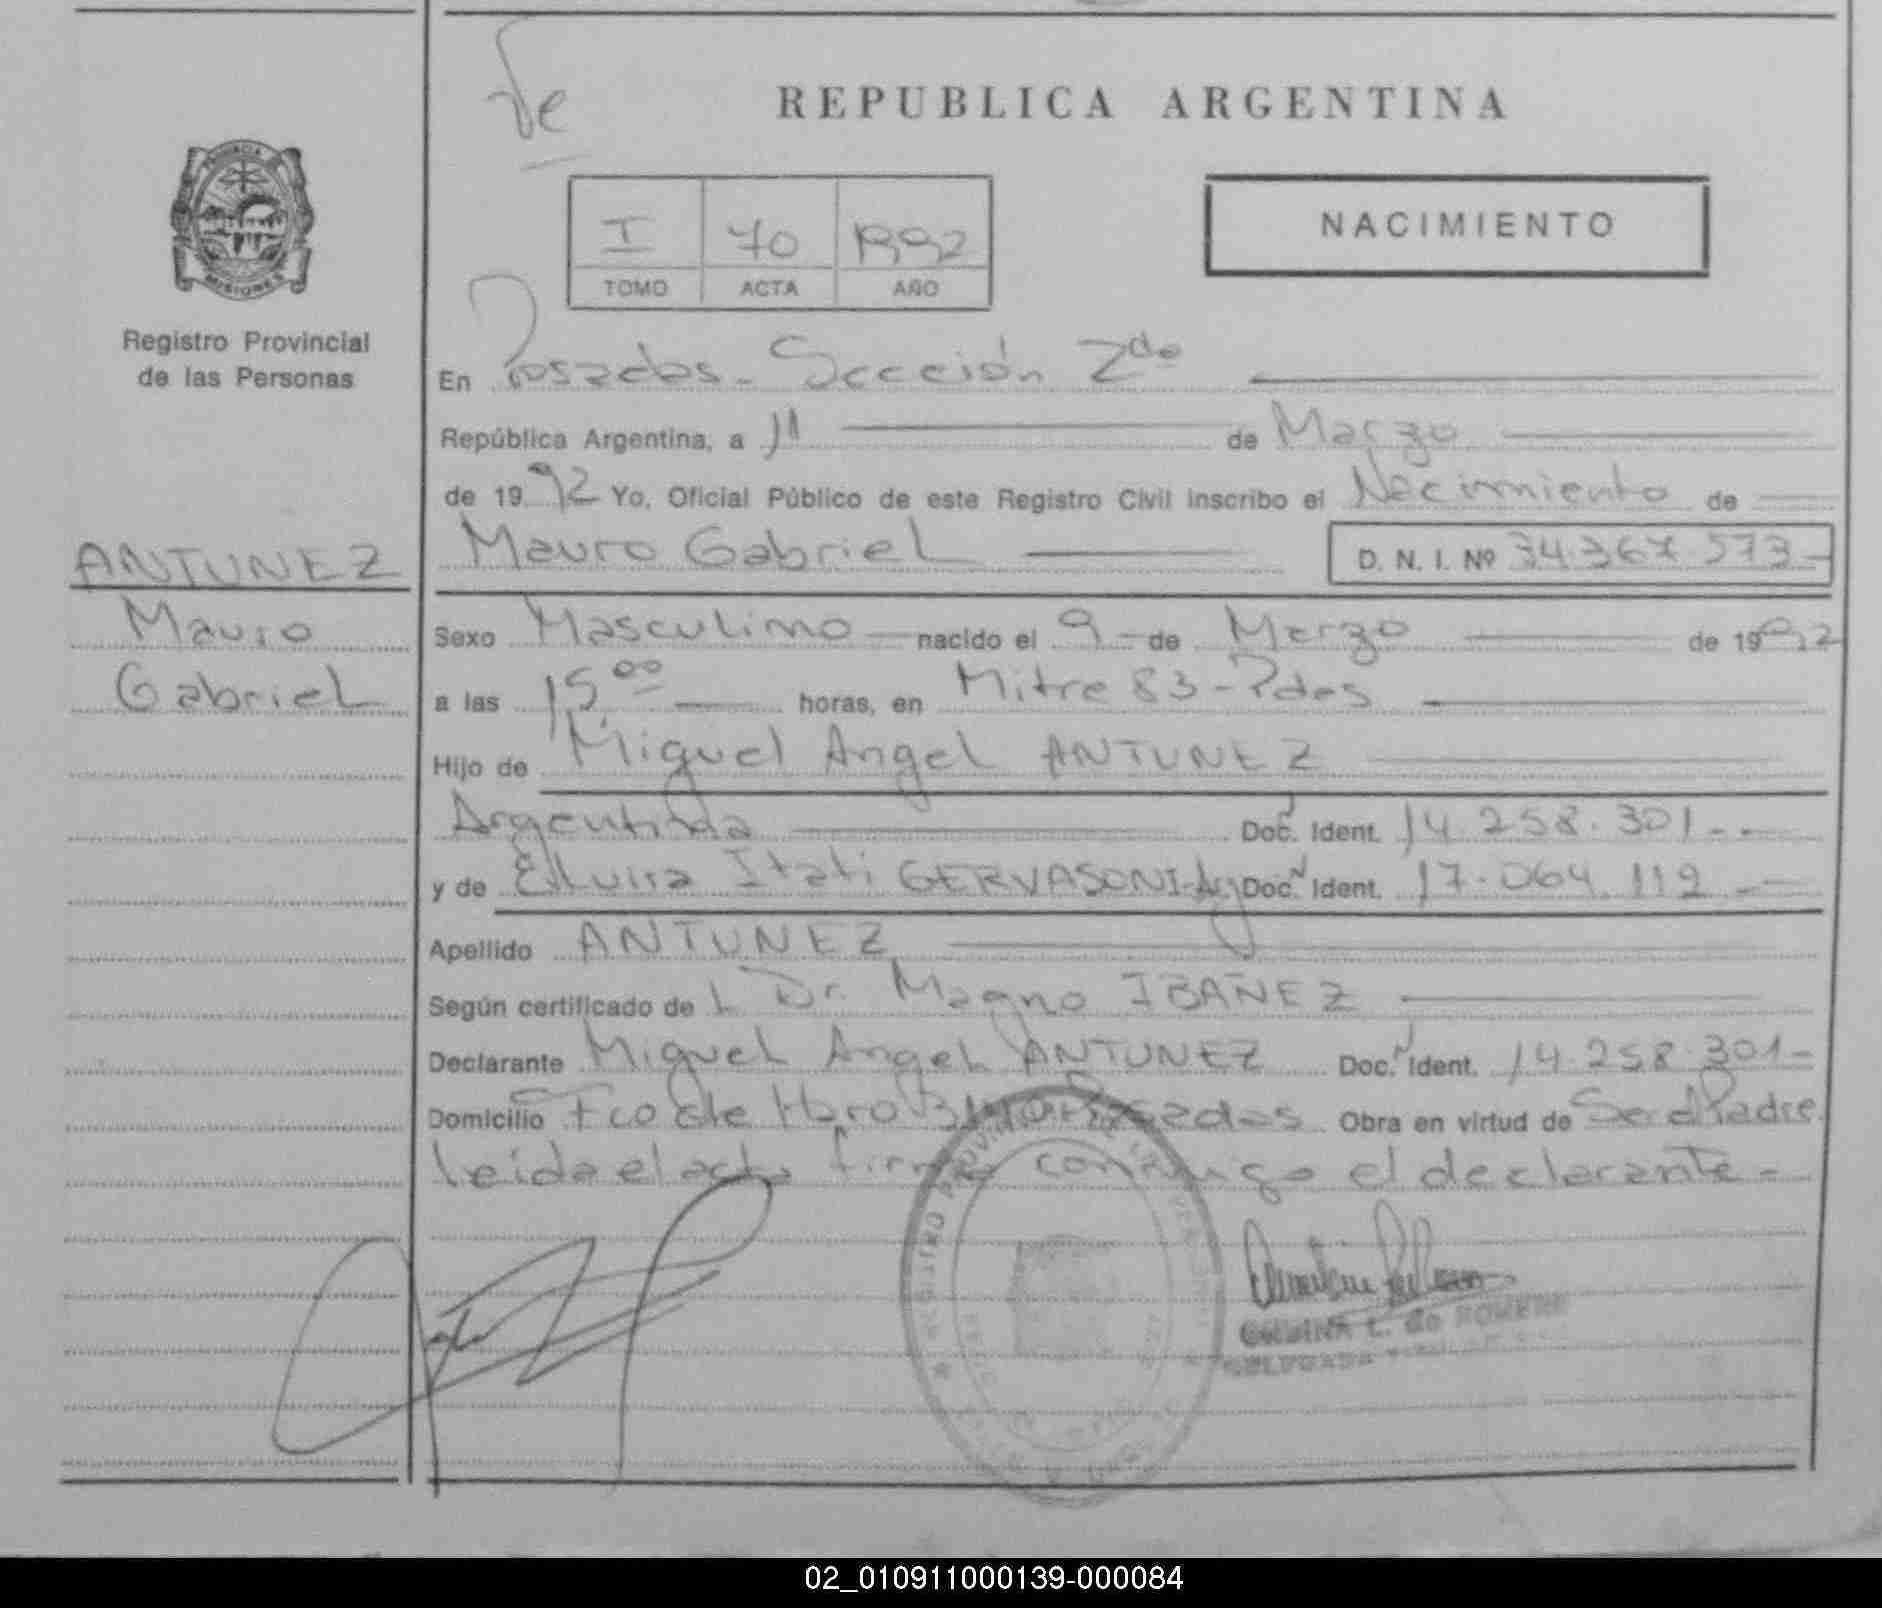 Te
REPUBLICA ARGENTINA
NACIMIENTO
I 70 1992
TOMO ACTA AÑO
PROVINCIA
MISIONES
Registro Provincial
de las Personas
En Posadas - Sección 2da
República Argentina, a 11 de Marzo
de 1992 Yo, Oficial Público de este Registro Civil inscribo el Nacimiento de
ANTUNEZ
Mauro Gabriel D. N. I. Nº 34.367.573-
Mauro
Gabriel
Sexo Masculino nacido el 9 de Marzo de 1992
a las 15 00 horas, en Mitre 83 - Pdas
Hijo de Miguel Angel ANTUNEZ
Argentina Doc. Ident. 14.258.301.-
y de Elvira Itati GERVASONI-Arg Doc. Ident. 17.064.112.-
Apellido ANTUNEZ
Según certificado de L Dr. Magno IBAÑEZ
Declarante Miguel Angel ANTUNEZ Doc. Ident. 14.258.301-
Domicilio Fco de Haro Posadas Obra en virtud de Ser el Padre
leida el acta firma conmigo el declarante -
REGISTRO PROVINCIAL DE LAS PERSONAS
L. de ROMERO
DELEGADA
02_010911000139-000084